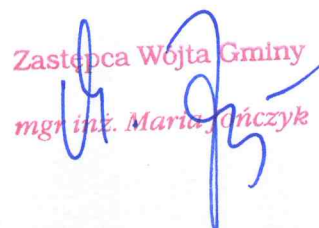 Zastępca Wójta Gminy
mgr inż. Maria Jończyk